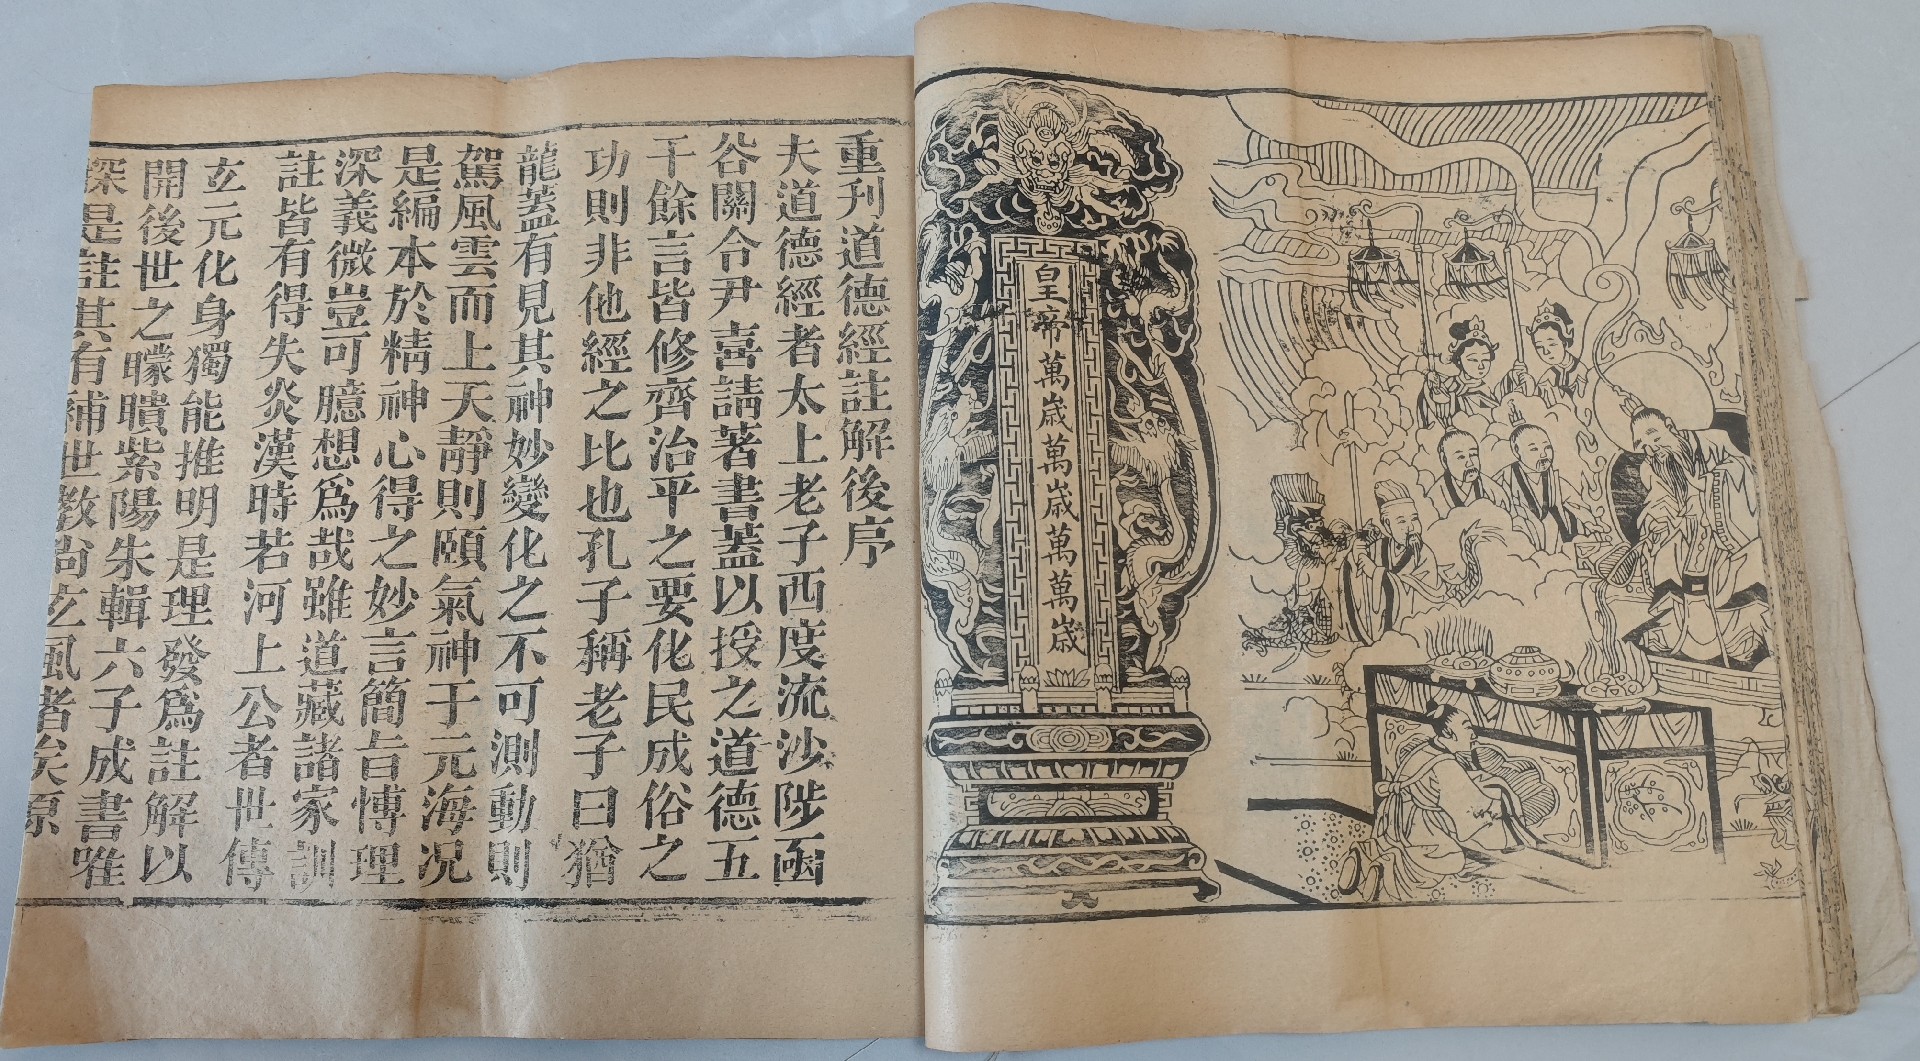 皇帝萬歲萬歲萬萬歲
重刋道德經註解後序
夫道德經者太上老子西度流沙陟凾
谷關令尹喜請著書蓋以授之道德五
千餘言皆修齊治平之要化民成俗之
功則非他經之比也孔子稱老子曰猶
龍蓋有見其神妙變化之不可測動則
駕風雲而上天靜則頤氣神于元海况
是編本於精神心得之妙言簡旨博理
深義微豈可臆想爲哉雖道藏諸家訓
註皆有得失炎漢時若河上公者世傳
玄元化身獨能推明是理發爲註解以
開後世之矇瞶紫陽朱輯六子成書唯
深是註其有補世教尚玄風者矣原